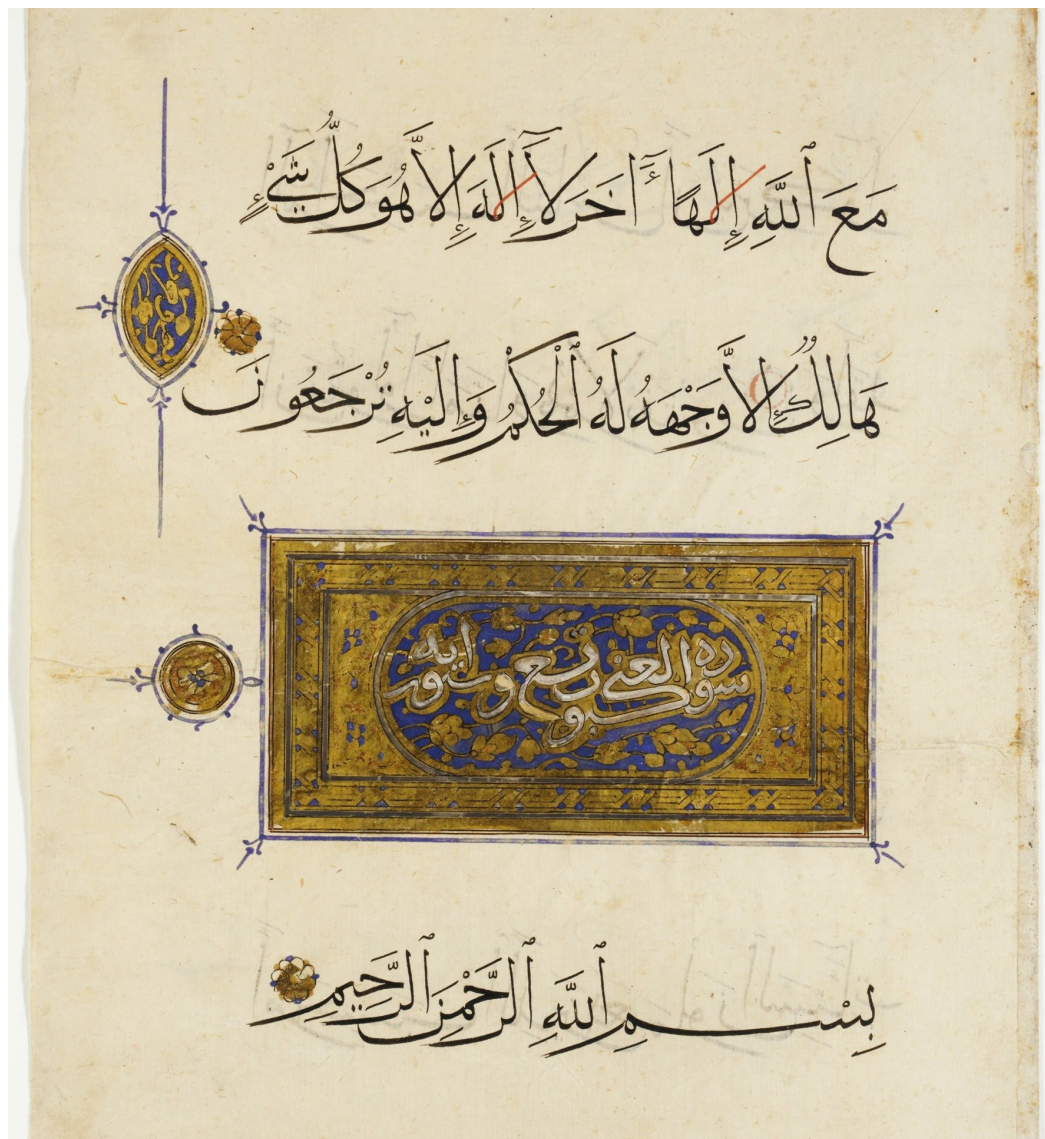 مَعَ ٱللَّهِ إِلَهًا ءَاخَرَ لَآ إِلَهَ إِلَّا هُوَ كُلُّ شَيْءٍ
هَالِكٌ إِلَّا وَجْهَهُ لَهُ ٱلْحُكْمُ وَإِلَيْهِ تُرْجَعُونَ
سورة العنكبوت تسع وستون اية
بِسْمِ ٱللَّهِ ٱلرَّحْمَنِ ٱلرَّحِيمِ